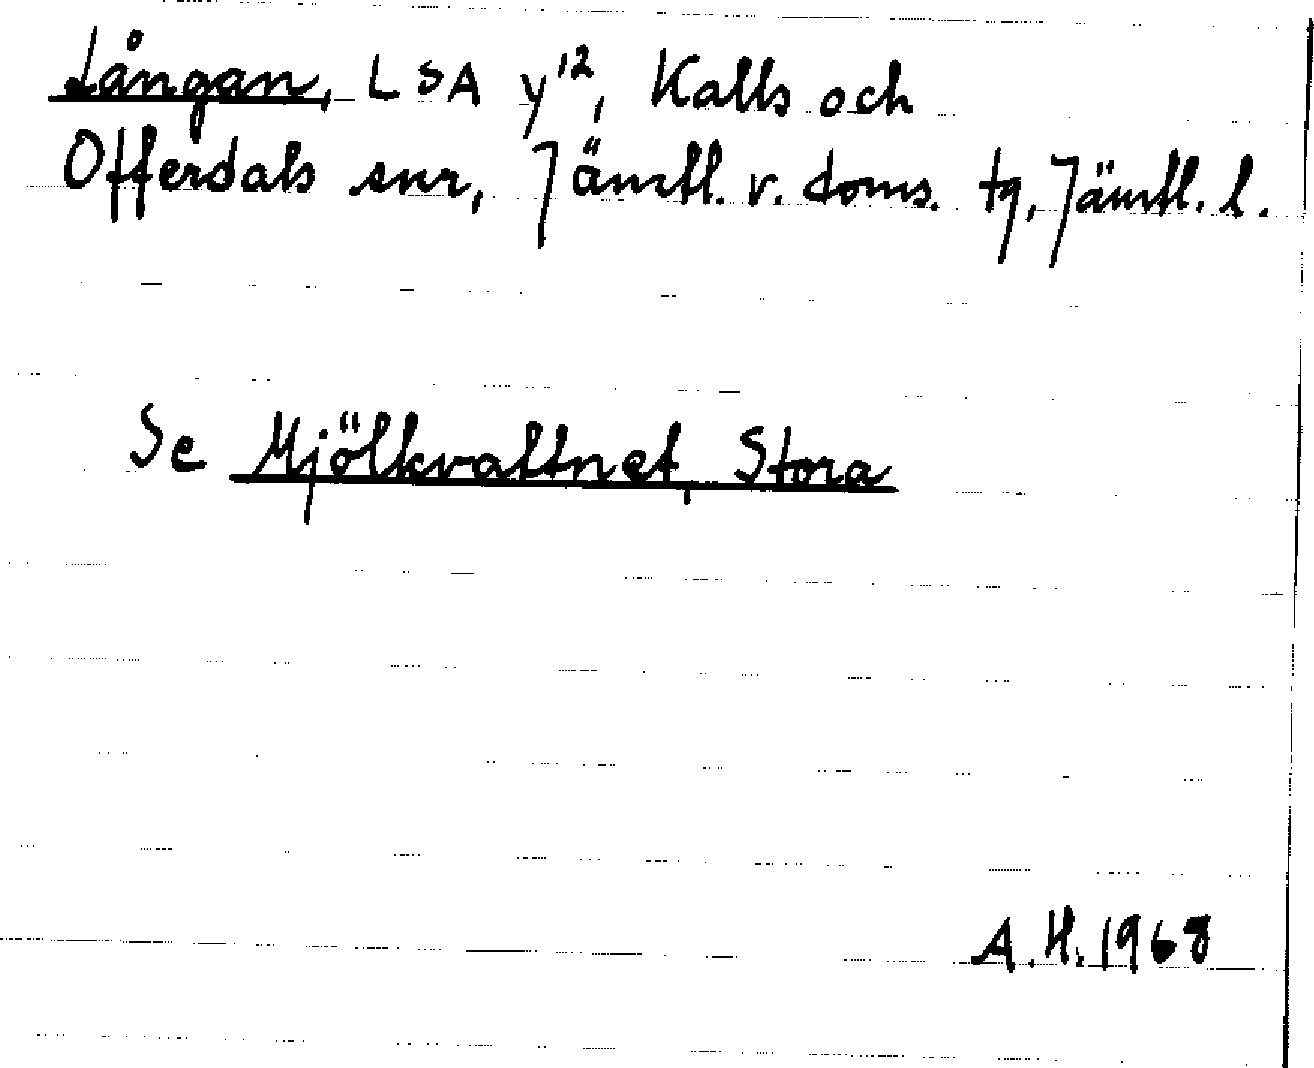 Långan, LSA y'2, Kalls och
Offerdals snr, Jämtl. v. doms. tg, Jämtl. l.
Se Mjölkvattnet, Stora
A.H. 1968